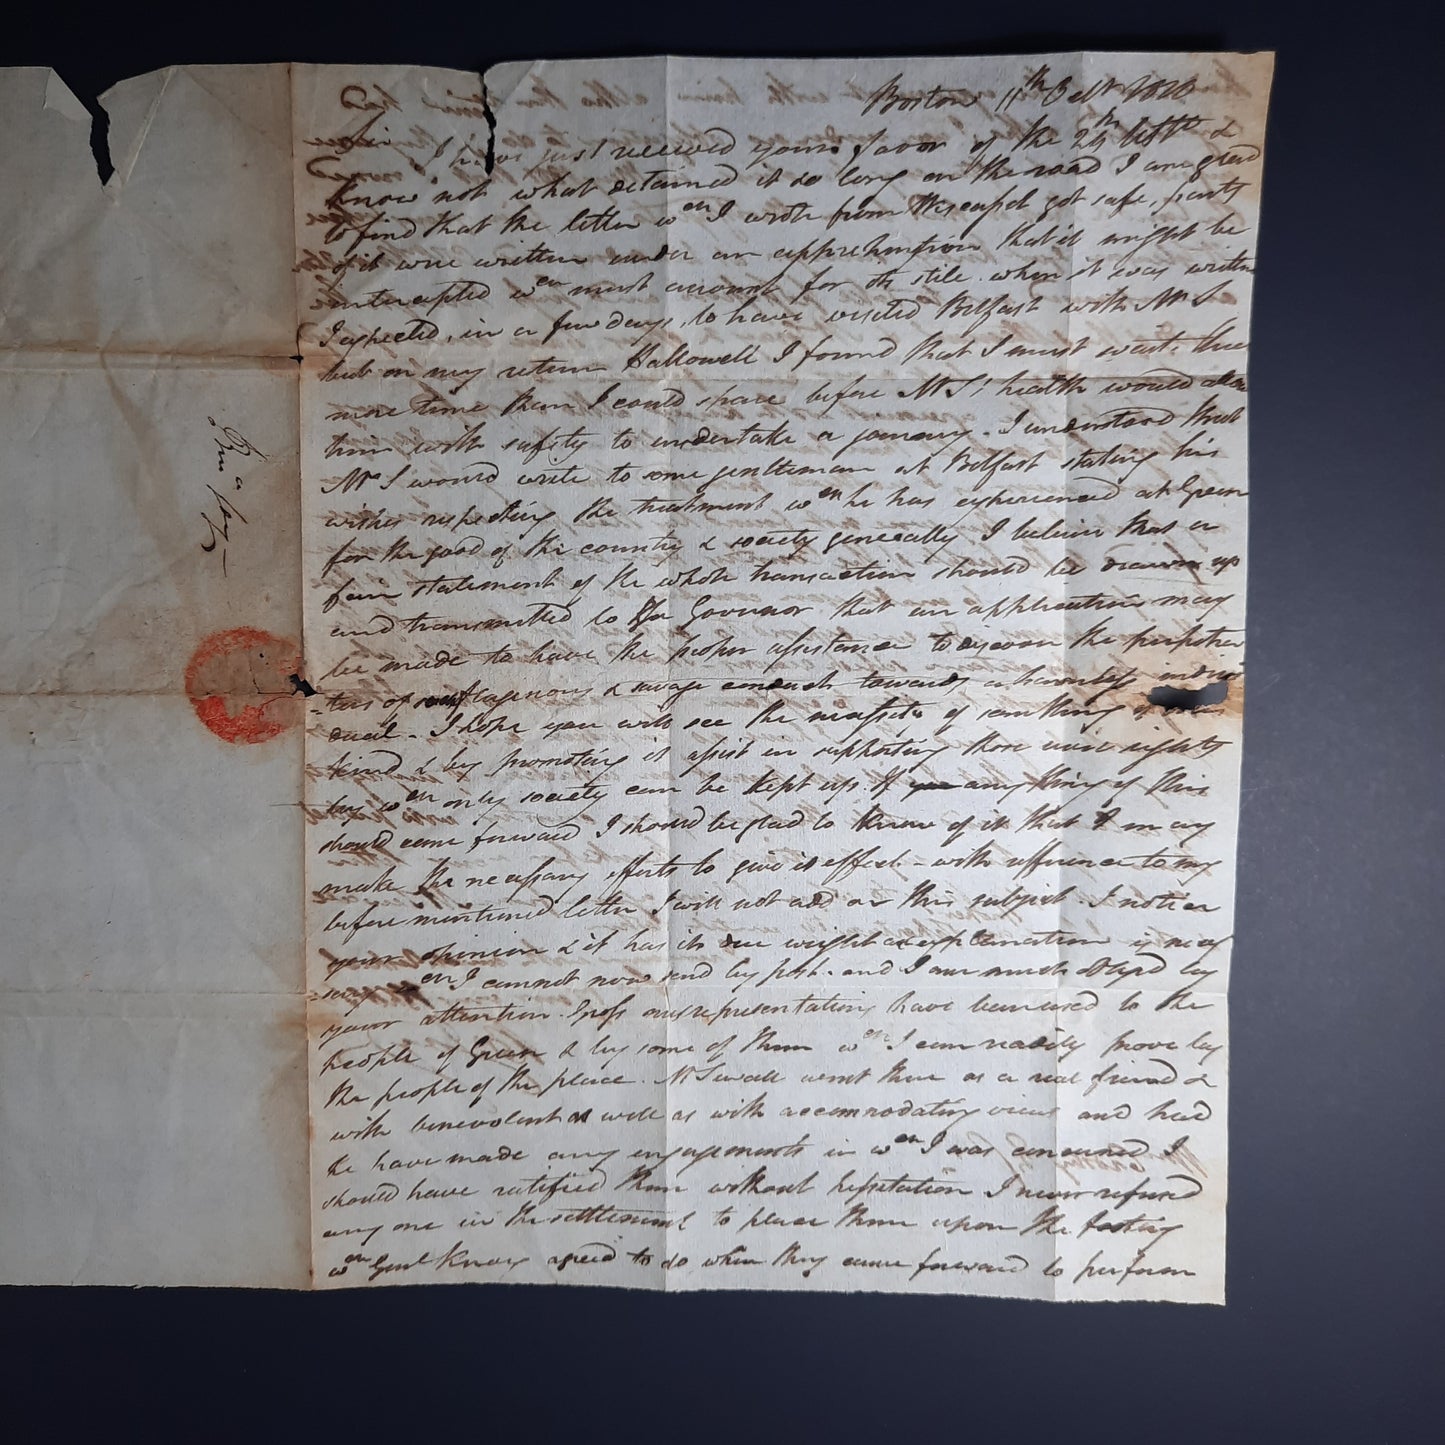 Boston 11th Oct 1820
Sir
I have just received your favor of the 24th Septr &
know not what detained it so long on the road I am glad
to find that the letter wch I wrote from this expd got safe, parts
of it were written under an apprehension that it might be
intercepted wch must account for its stile. when it was written
I expected, in a few days, to have visited Belfast with Mr S
but on my return Hallowell I found that I must wait there
more time than I could spare before Mr S's health would allow
him with safety to undertake a journey. I understood that
Mr S would write to some gentleman at Belfast stating his
wishes respecting the treatment wch he has experienced at Green
for the good of the country & society generally I believe that a
fair statement of the whole transaction should be drawn up
and transmitted to the Governor that an application may
be made to have the proper assistance to discover the perpetra
-tors of outrageous & savage conduct towards a harmless indivi
dual - I hope you will see the necessity of something of this
kind & by promoting it assist in supporting those civic rights
by wch only society can be kept up. If any thing of this
should come forward I should be glad to know of it that I may
make the necessary efforts to give it effect - with reference to my
before mentioned letter I will not add on this subject. I notice
your opinion & it has its due weight explanation is
wch I cannot now send by post. and I am much obliged by
your attention. Gross misrepresentations have been used to the
people of Green & by some of them wch I can readily prove by
the people of the place. Mr Sewall went there as a real friend &
with benevolent as well as with accommodating views and had
he have made any engagements in wch I was concerned I
should have ratified them without hesitation I never refused
any one in the settlement to place them upon the footing
wch Genl Knox agreed to do when they came forward to perform